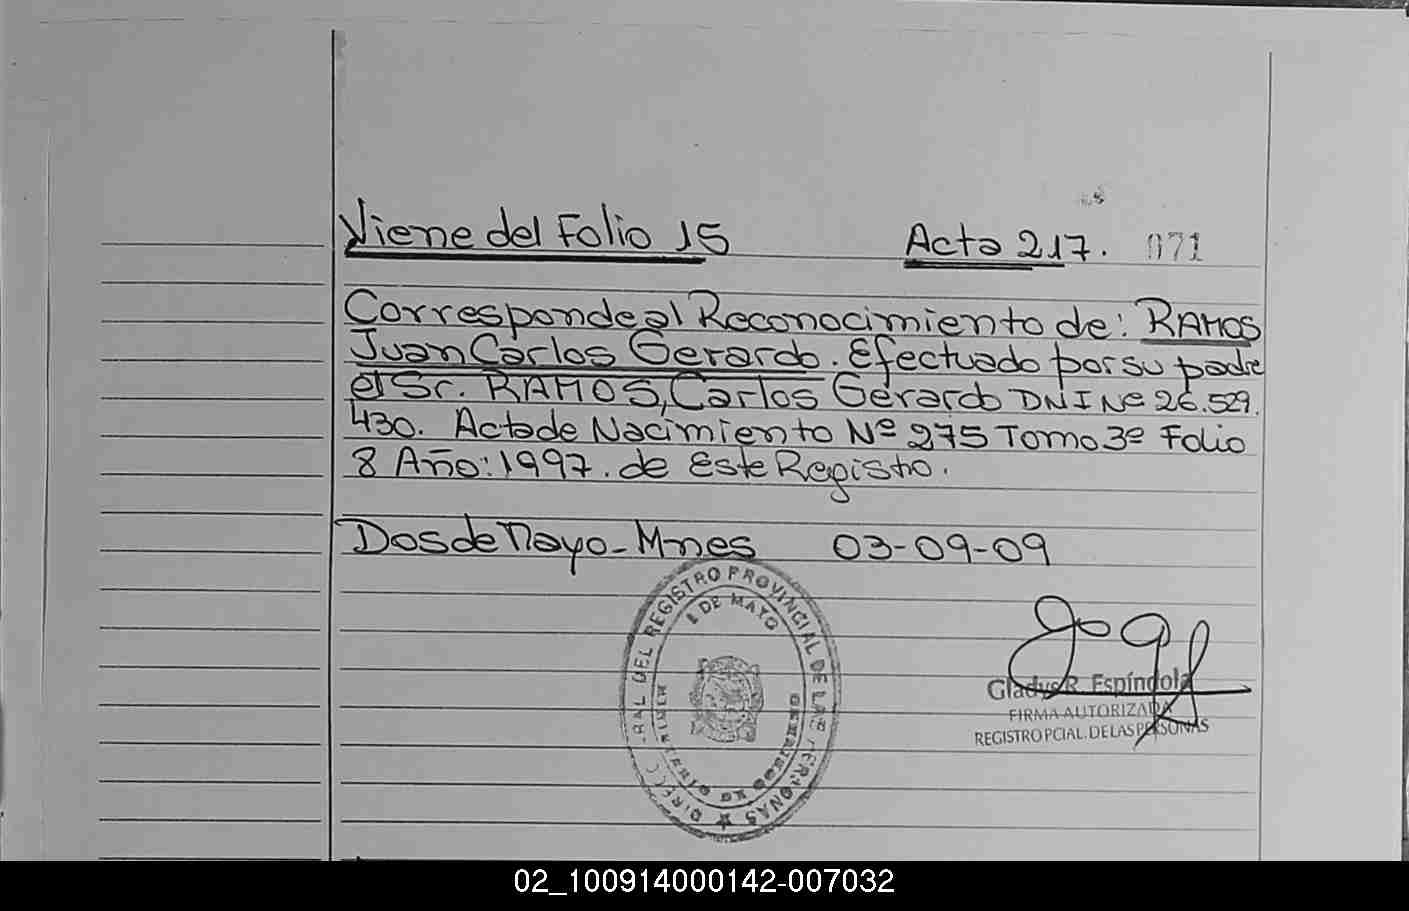 Viene del Folio 15 Acta 217. 071
Corresponde al Reconocimiento de: RAMOS
Juan Carlos Gerardo. Efectuado por su padre
el Sr. RAMOS, Carlos Gerardo DNI Nº 26.529.
430. Acta de Nacimiento Nº 275 Tomo 3º Folio
8 Año: 1997. de Este Registro.
Dos de Mayo - Mnes 03-09-09
DEL REGISTRO PROVINCIAL DE LAS PERSONAS
DE MAYO
Gladys R. Espíndola
FIRMA AUTORIZADA
REGISTRO PCIAL. DE LAS PERSONAS
02_100914000142-007032